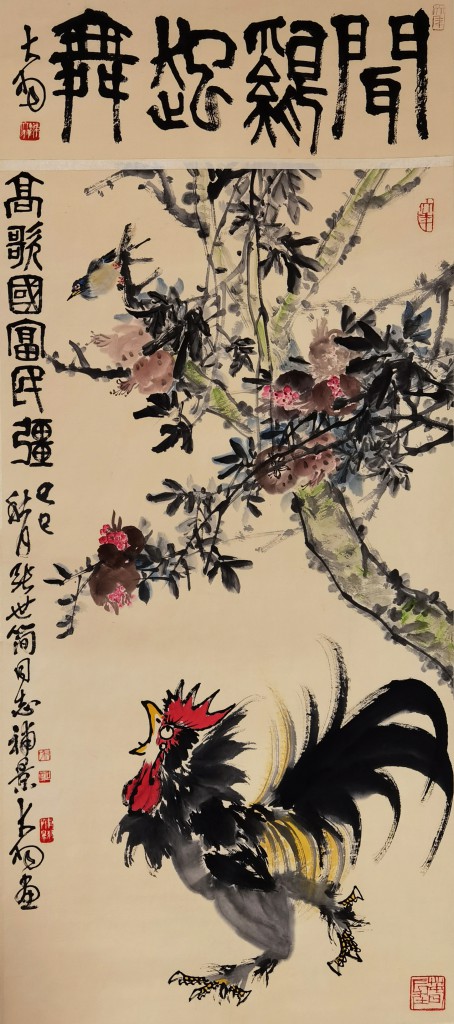 聞鷄起舞
大羽
高歌國富民彊
己巳秋月張世簡同志補景大羽画